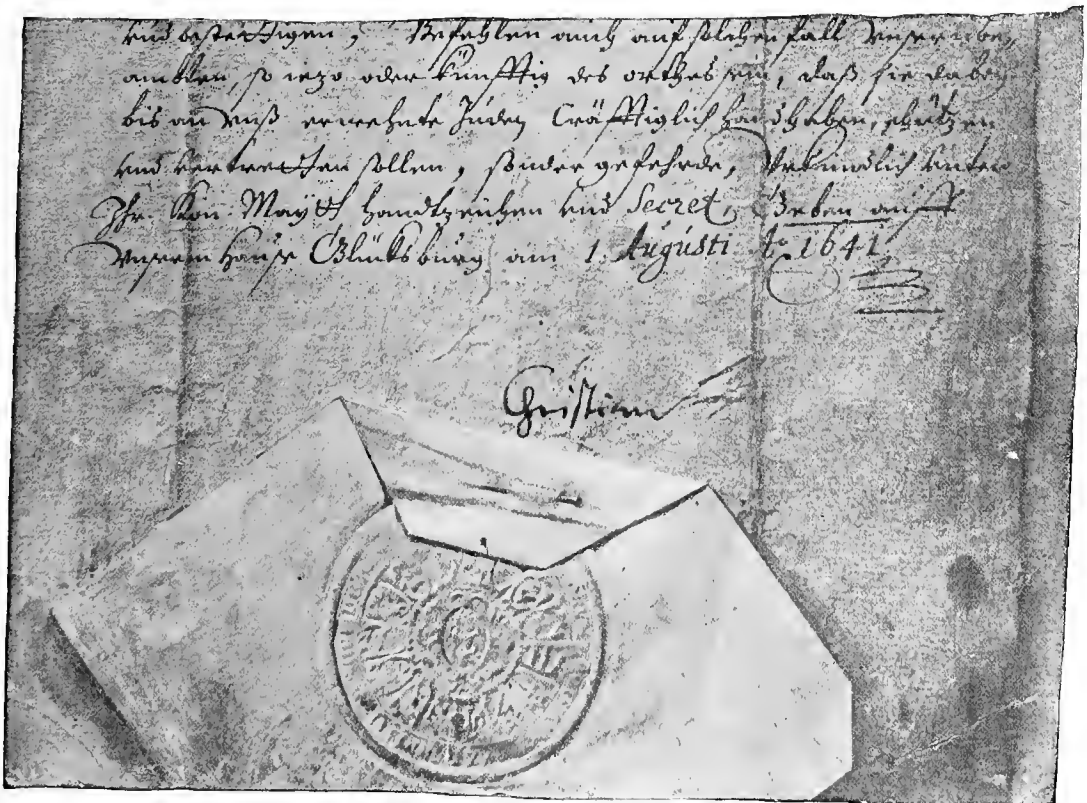 und bestettigen, Befehlen auch auf solchen fall Unsern be,
ambten, so iezo oder künfftig des orthes sein, daß sie dabey
bis an Unß erwehnte Juden Cräfftiglich handhaben, schützen
und vertretten sollen, sonder gefehrde, Uhrkundlich unter
Ihr Kön: Maytt handtzeichen und Secret, Geben auff
Unserm Hause Glücksburg am 1. Augusti Ao 1641.
Christian